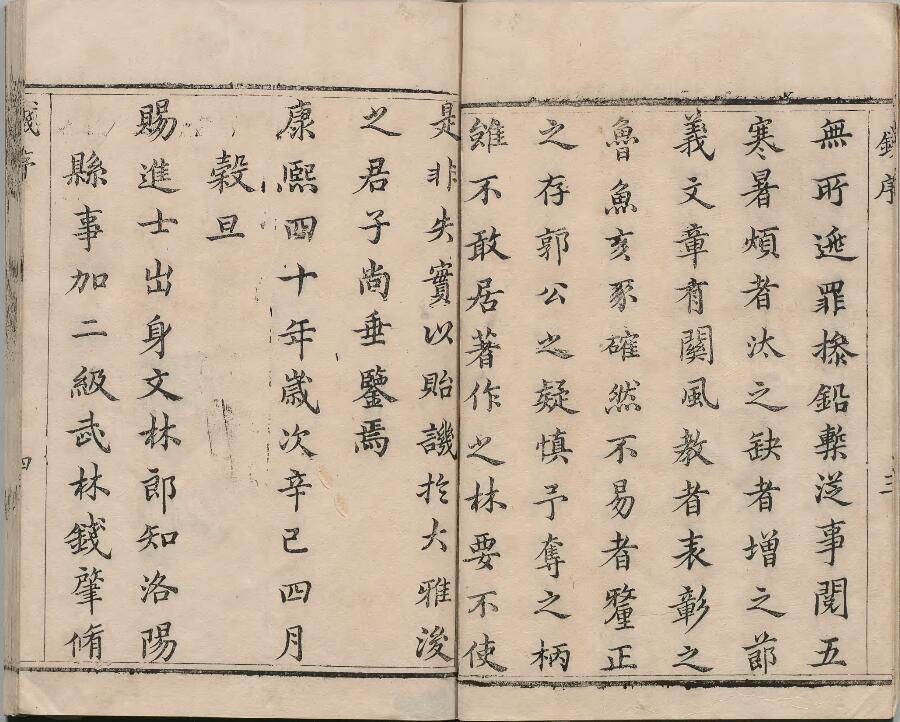 錢序
三
無所逃罪摻鉛槧從事閱五
寒暑煩者汰之缺者增之節
義文章有關風教者表彰之
魯魚亥豕確然不易者釐正
之存郭公之疑慎予奪之柄
雖不敢居著作之林要不使
是非失實以貽譏於大雅後
之君子尚垂鑒焉
康熙四十年歲次辛巳四月
穀旦
賜進士出身文林郎知洛陽
縣事加二級武林錢肇脩
錢序
四